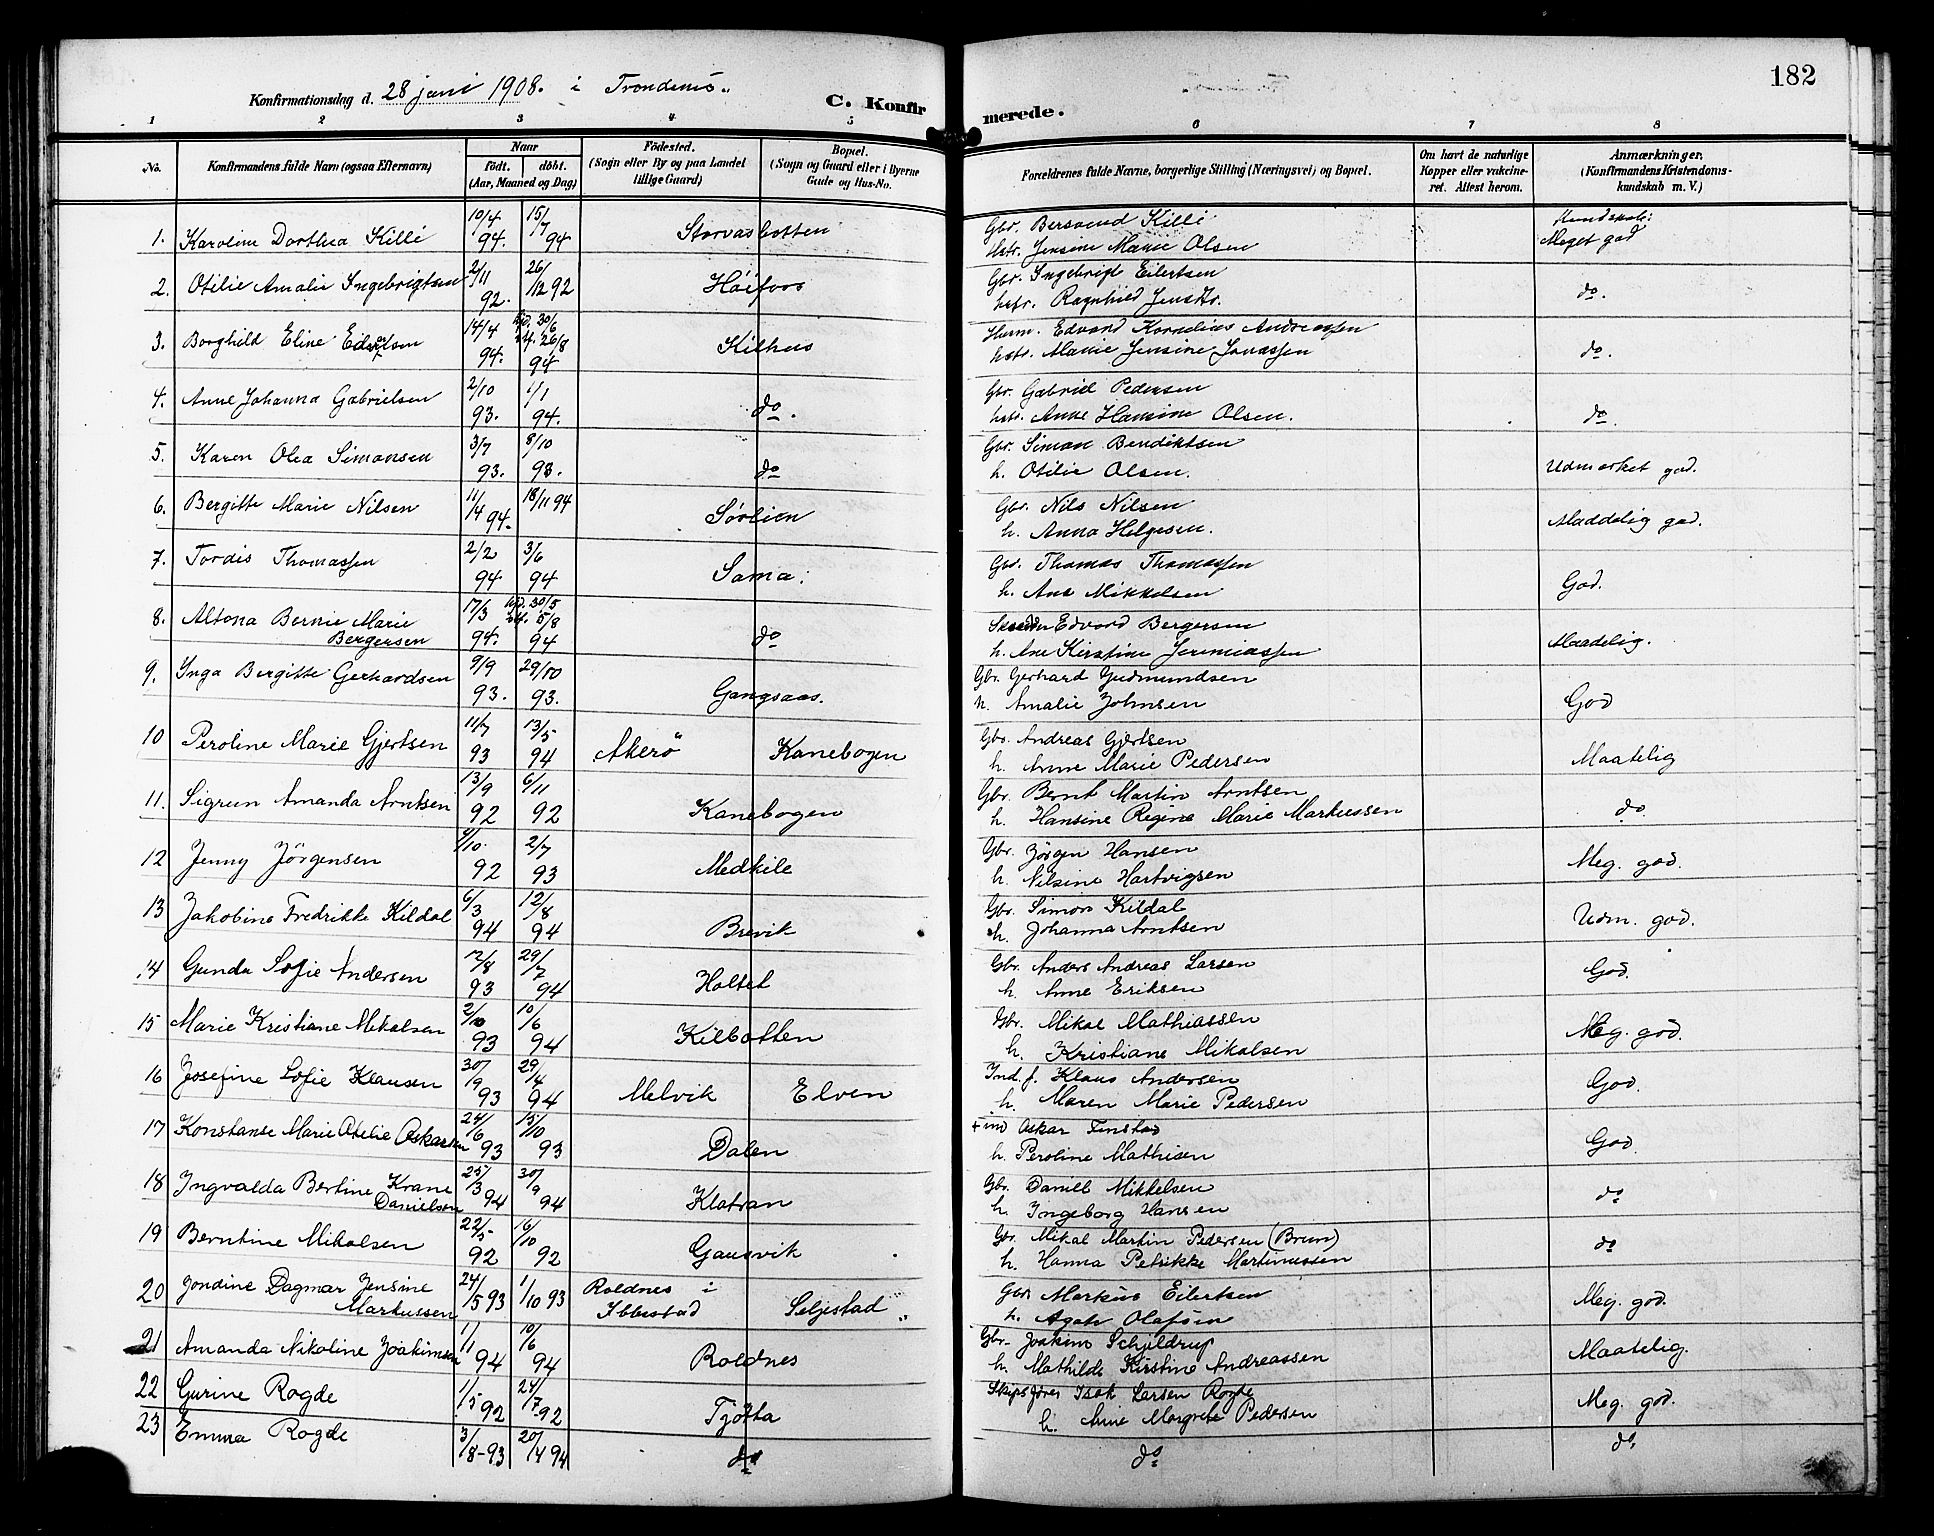 Konfirmationsdag d. 28 juni 1908. i Trondenes.
C. Konfirmerede.
182
1 2 3 4 5 6 7 8
No.
Konfirmandens fulde Navn (ogsaa Efternavn)
Naar
født. døbt.
(Aar, Maaned og Dag)
Fødested.
(Sogn eller By og paa Landet
tillige Gaard)
Bopæl.
(Sogn og Gaard eller i Byerne
Gade og Hus-No.
Forældrenes fulde Navne, borgerlige Stilling (Næringsvei) og Bopæl.
Om havt de naturlige
Kopper eller vakcine-
ret. Attest herom.
Anmærkninger.
(Konfirmandens Kristendoms-
kundskab m. V.)
1. Karoline Dorthea Killi 10/4 94. 15/7 94 Storvasbotten Gbr. Bersvend Killi Kundskab:
Hstr. Jensine Marie Olsen Meget god
2. Otilie Amalie Ingebrigtsen 2/11 92. 26/12 92 Höifoss Gbr. Ingebrigt Eilertsen
hstr. Ragnhild Jensdr. do.
3. Borghild Eline Edvardsen 14/4 94. hjd. 30/6 st. 26/8 94 Kilhus Husm. Edvard Kornelius Andreassen
hstr. Marie Jensine Jonassen do.
4. Anne Johanna Gabrielsen 2/10 93. 1/1 94. do. Gbr. Gabriel Pedersen
hstr. Anne Hansine Olsen. do.
5. Karen Olea Simonsen 3/7 93. 8/10 93. do Gbr. Simon Bendiktsen
h. Otilie Olsen. Udmerket god.
6. Bergitte Marie Nilsen 11/4 94. 18/11 94 Sørlien Gbr. Nils Nilsen
h. Anna Helgesen. Maadelig god.
7. Tordis Thomassen 2/2 94 3/6 94 Sama: Gbr. Thomas Thomassen
h. Ane Mikkelsen God.
8. Altona Bernie Marie 17/3 94. hjd. 30/5 st. 5/8 94 do Skredder Edvard Bergersen
Bergersen h. Ane Kirstine Jeremiassen Maadelig.
9. Inga Bergitte Gerhardsen 9/9 93. 29/10 93. Gangsaas. Gbr. Gerhard Gudmundsen
h. Amalie Johnsen God
10 Peroline Marie Gjertsen 11/7 93 13/5 94 Akerö Kanebogen Gbr. Andreas Gjertsen
h. Anne Marie Pedersen Maatelig
11. Sigrun Amanda Arntsen 13/9 92 6/11 92 Kanebogen Gbr. Bernt Martin Arntsen
h. Hansine Regine Marie Markussen do.
12 Jenny Jörgensen 9/10. 92 2/7 93 Medkile Gbr. Jörgen Hansen
h. Nilsine Hartvigsen Meg. god.
13 Jakobine Fredrikke Kildal 6/3 94 12/8 94 Brevik Gbr. Simon Kildal
h. Johanna Arntsen Udm. god.
14 Gunda Sofie Andersen 12/8 93 29/7 94 Holtet Gbr. Anders Andreas Larsen
h. Anne Eriksen God.
15 Marie Kristiane Mikalsen 2/10 93 10/6 94 Kilbotten Gbr. Mikal Mathiassen
h. Kristiane Mikalsen Meg. god.
16 Josefine Sofie Klausen 30/9 93 29/4 94 Melvik Elven Ind. f. Klaus Andersen
h. Maren Marie Pedersen God.
17 Konstanse Marie Otelie Oskarsen 24/6 93 15/10 93 Dalen + ind Oskar Finstad
h. Peroline Mathisen God
18 Ingvalda Bertine Krane 25/3 94 30/9 94 Klatran Gbr. Daniel Mikkelsen
Danielsen h. Ingeborg Hansen do
19 Berntine Mikalsen 22/5 92 16/10 92 Gausvik Gbr. Mikal Martin Pedersen (Brun)
h. Hanna Petrikke Martinussen do
20 Jondine Dagmar Jensine 24/5 93 1/10 93 Roldnes i Gbr Markus Eilertsen
Markussen Ibbestad Seljestad h. Agate Olafsen Meg. god.
21 Amanda Nikoline Joakimsen 1/1 94 10/6 94 Roldnes Gbr. Joakim Schjeldrup
h. Mathilde Kirstine Andreassen Maatelig.
22 Gurine Rogde 1/5 92 24/7 92 Tjötta Skipsfører Isak Larsen Rogde
h. Anne Margrete Pedersen Meg. god.
23 Emma Rogde 3/8-93 20/4 94 do do do.